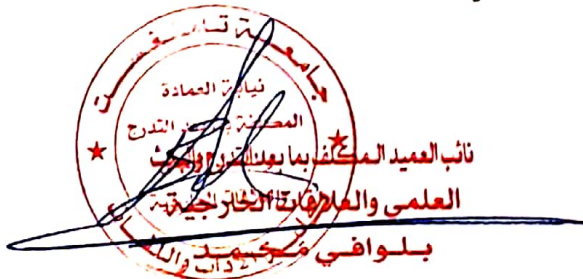 جامعة تامنغست
نيابة العمادة
المكلفة بما بعد التدرج
نائب العميد المكلف بما بعد التدرج والبحث
العلمي والعلاقات الخارجية
بلوافي محمد
الآداب واللغات